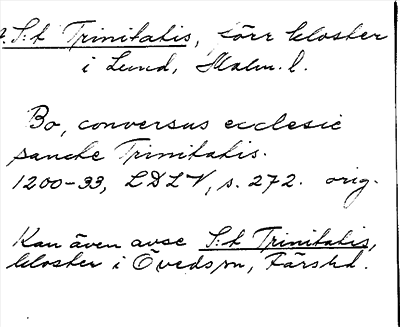 S:t Trinitatis, förr kloster
i Lund, Malm. l.
Bo, conversus ecclesie
sancte Trinitatis.
1200-33, LDLV, s. 272. orig.
Kan även avse S:t Trinitatis,
kloster i Övedsn, Färs hd.